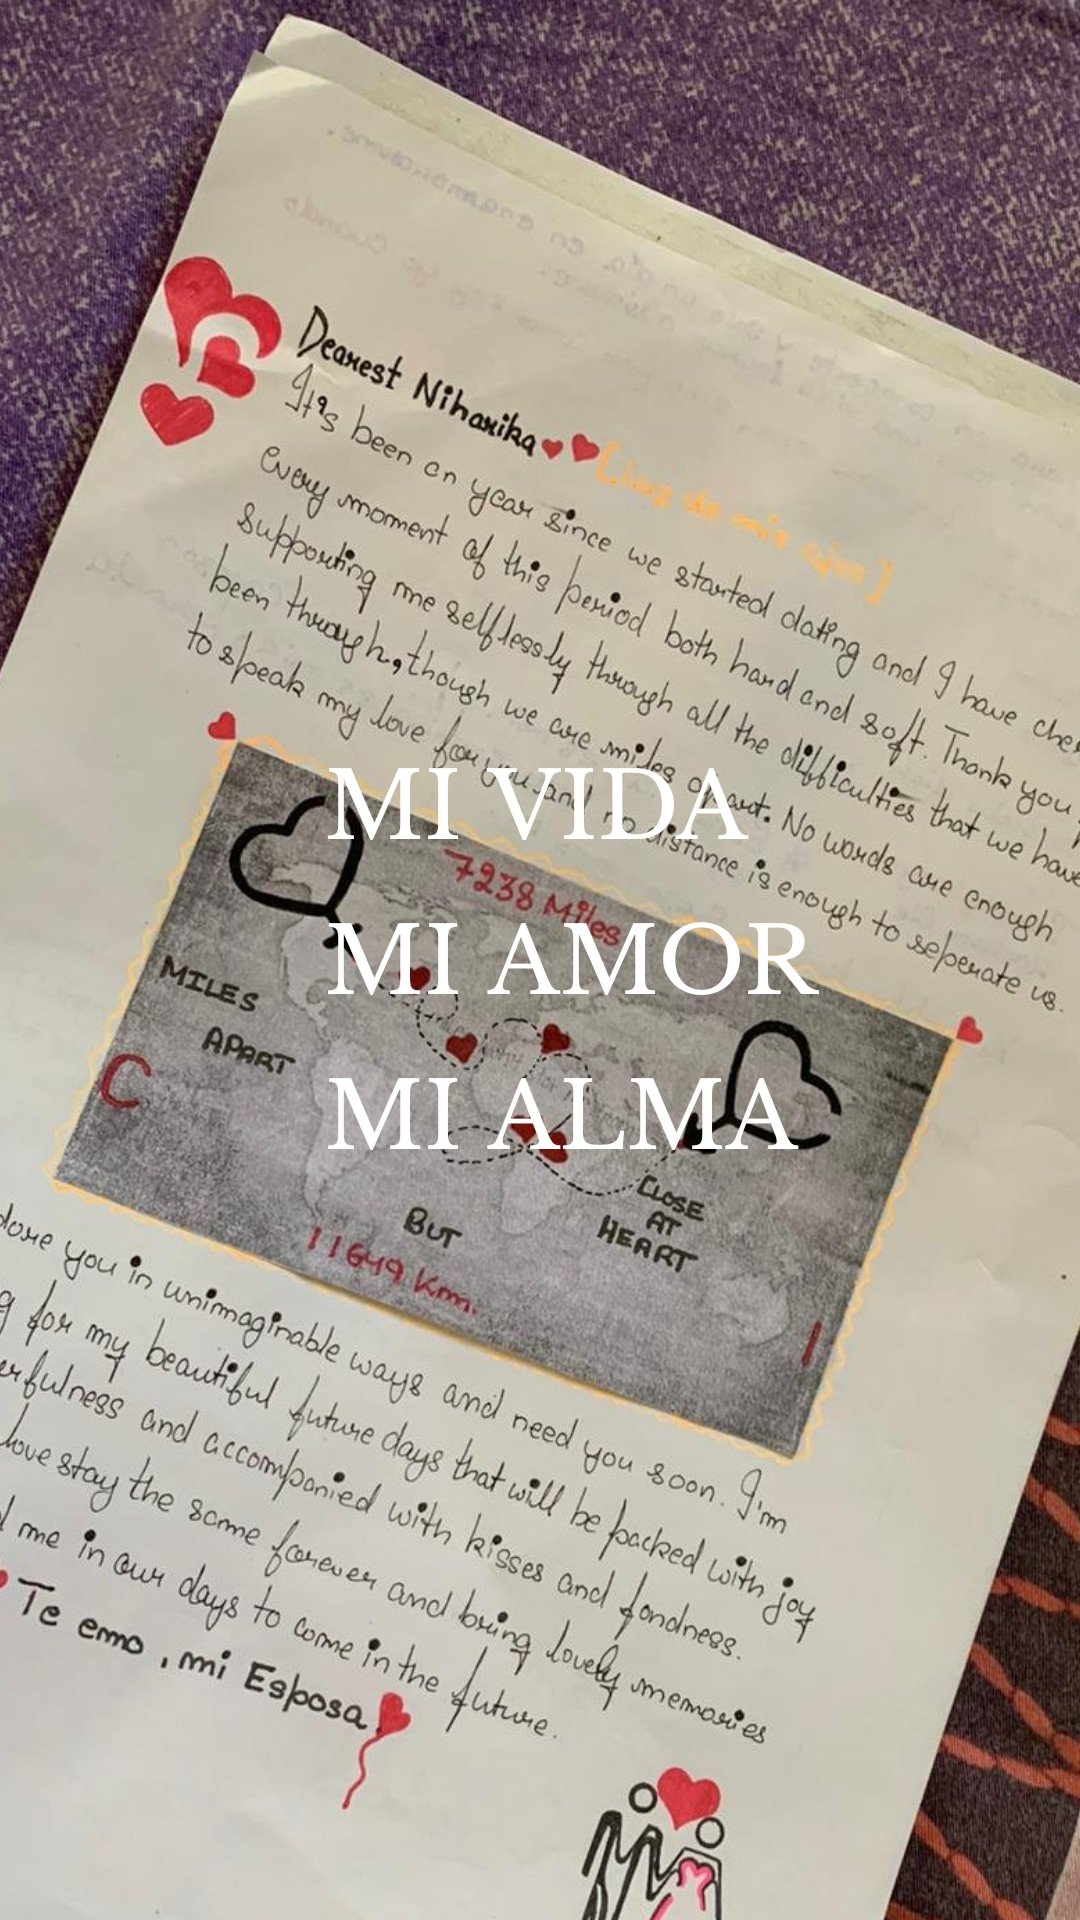 Dearest Niharika
[Luz de mis ojos]
It's been an year since we started dating and I have
every moment of this period both hard and soft. Thank you
supporting me selflessly through all the difficulties that we have
been through, though we are miles apart. No words are enough
to speak my love for you and no distance is enough to seperate us.
MI VIDA
MI AMOR
MI ALMA
7238 Miles
MILES
APART
C
BUT
CLOSE
AT
HEART
11649 Km.
I
you in unimaginable ways and need you soon. I'm
for my beautiful future days that will be packed with joy
and accompanied with kisses and fondness.
love stay the same forever and bring lovely memories
me in our days to come in the future.
Te emo, mi Esposa